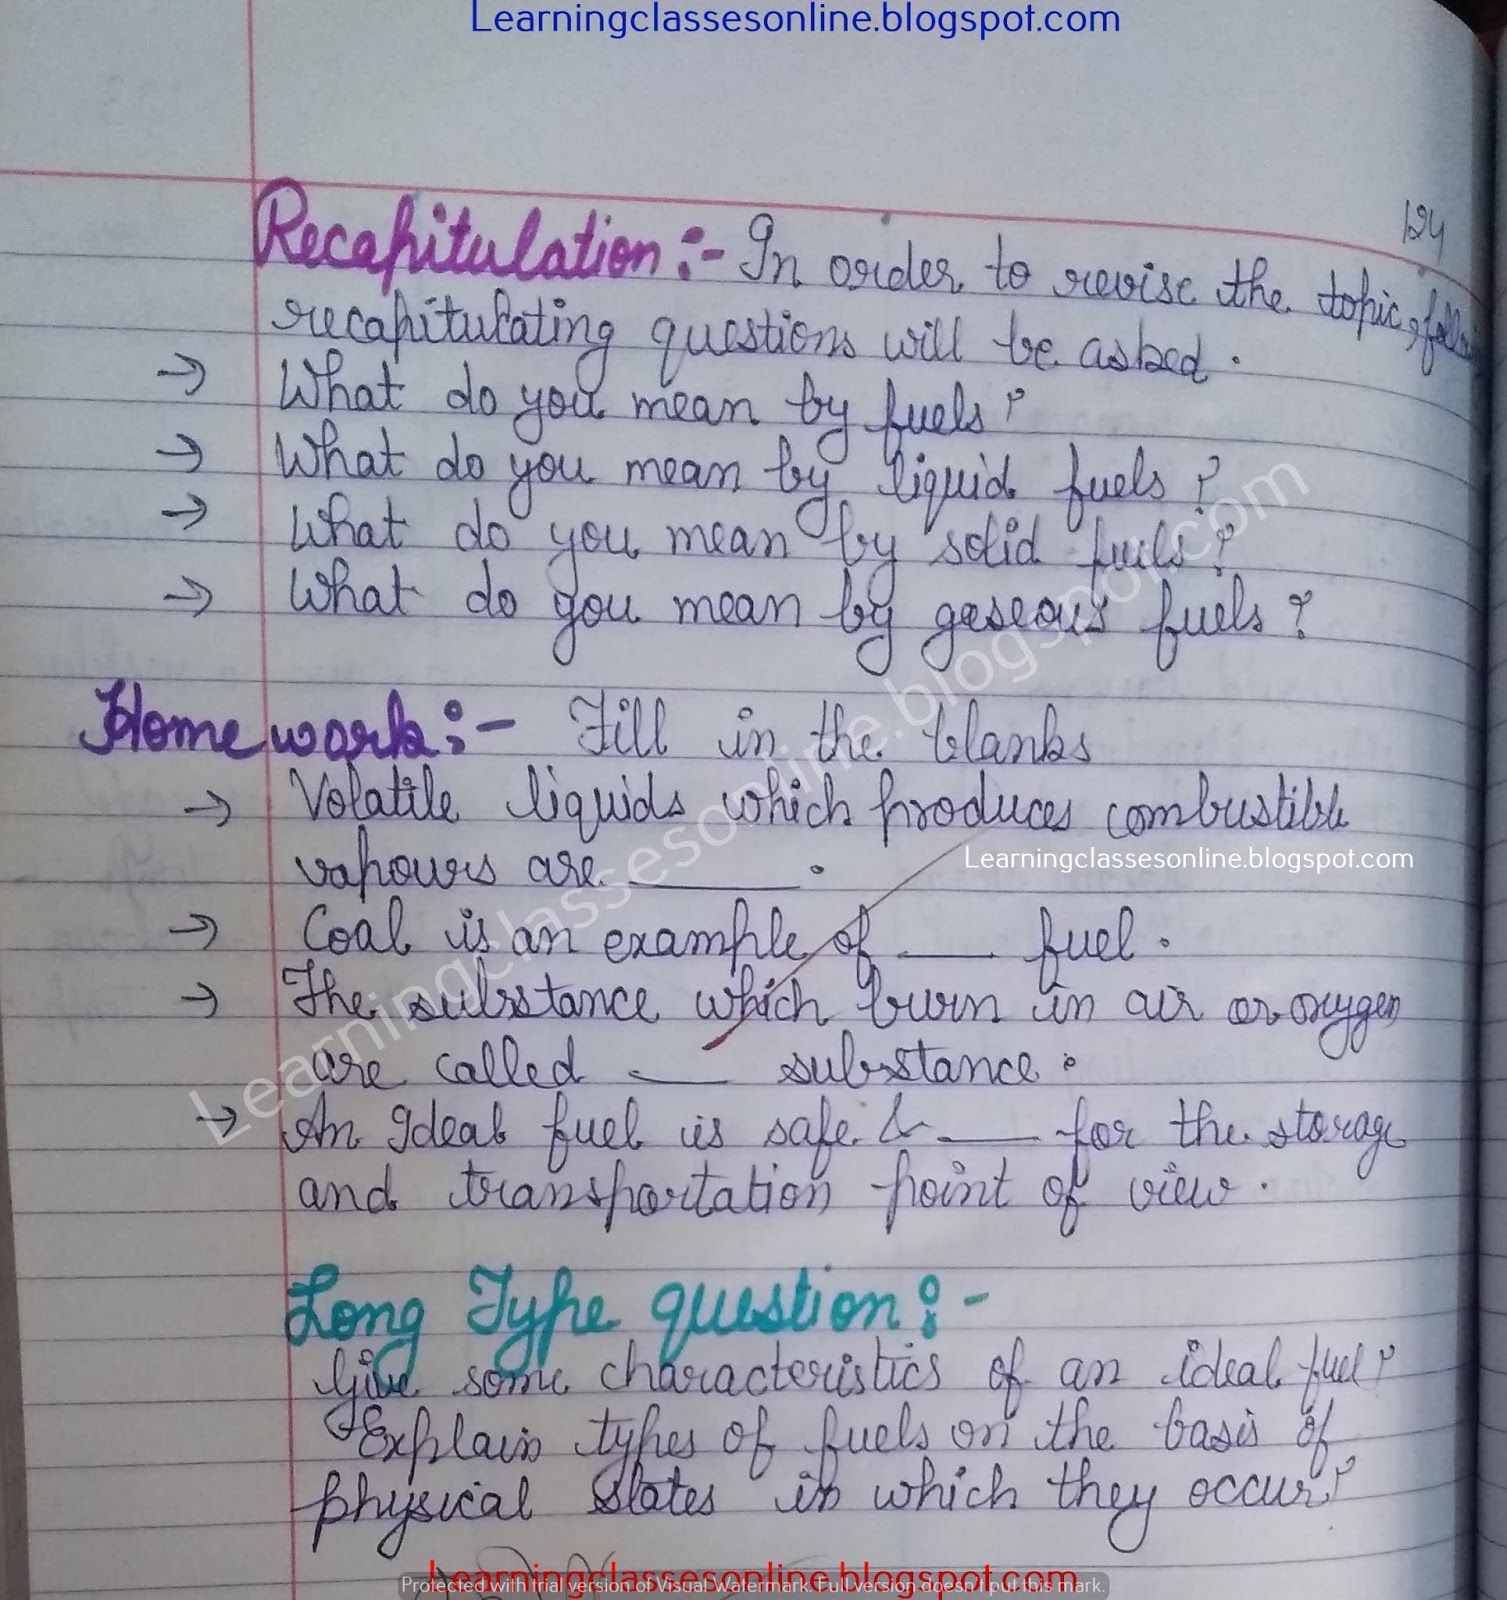 Learningclassesonline.blogspot.com
124
Recapitulation :- In order to revise the topic,
recapitulating questions will be asked.
→ What do you mean by fuels?
→ What do you mean by liquid fuels?
→ What do you mean by solid fuels?
→ What do you mean by gaseous fuels?
Home work :- Fill in the blanks
→ Volatile liquids which produces combustible
Learningclassesonline.blogspot.com
vapours are ______.
→ Coal is an example of ____ fuel.
→ The substance which burn in air or oxygen
are called ____ substance.
→ An Ideal fuel is safe & ____ for the storage
and transportation point of view.
Learningclassesonline.blogspot.com
Long Type question :-
Give some characteristics of an ideal fuel?
Explain types of fuels on the basis of
physical states in which they occur?
Learningclassesonline.blogspot.com
Protected with trial version of Visual Watermark. Full version doesn't put this mark.